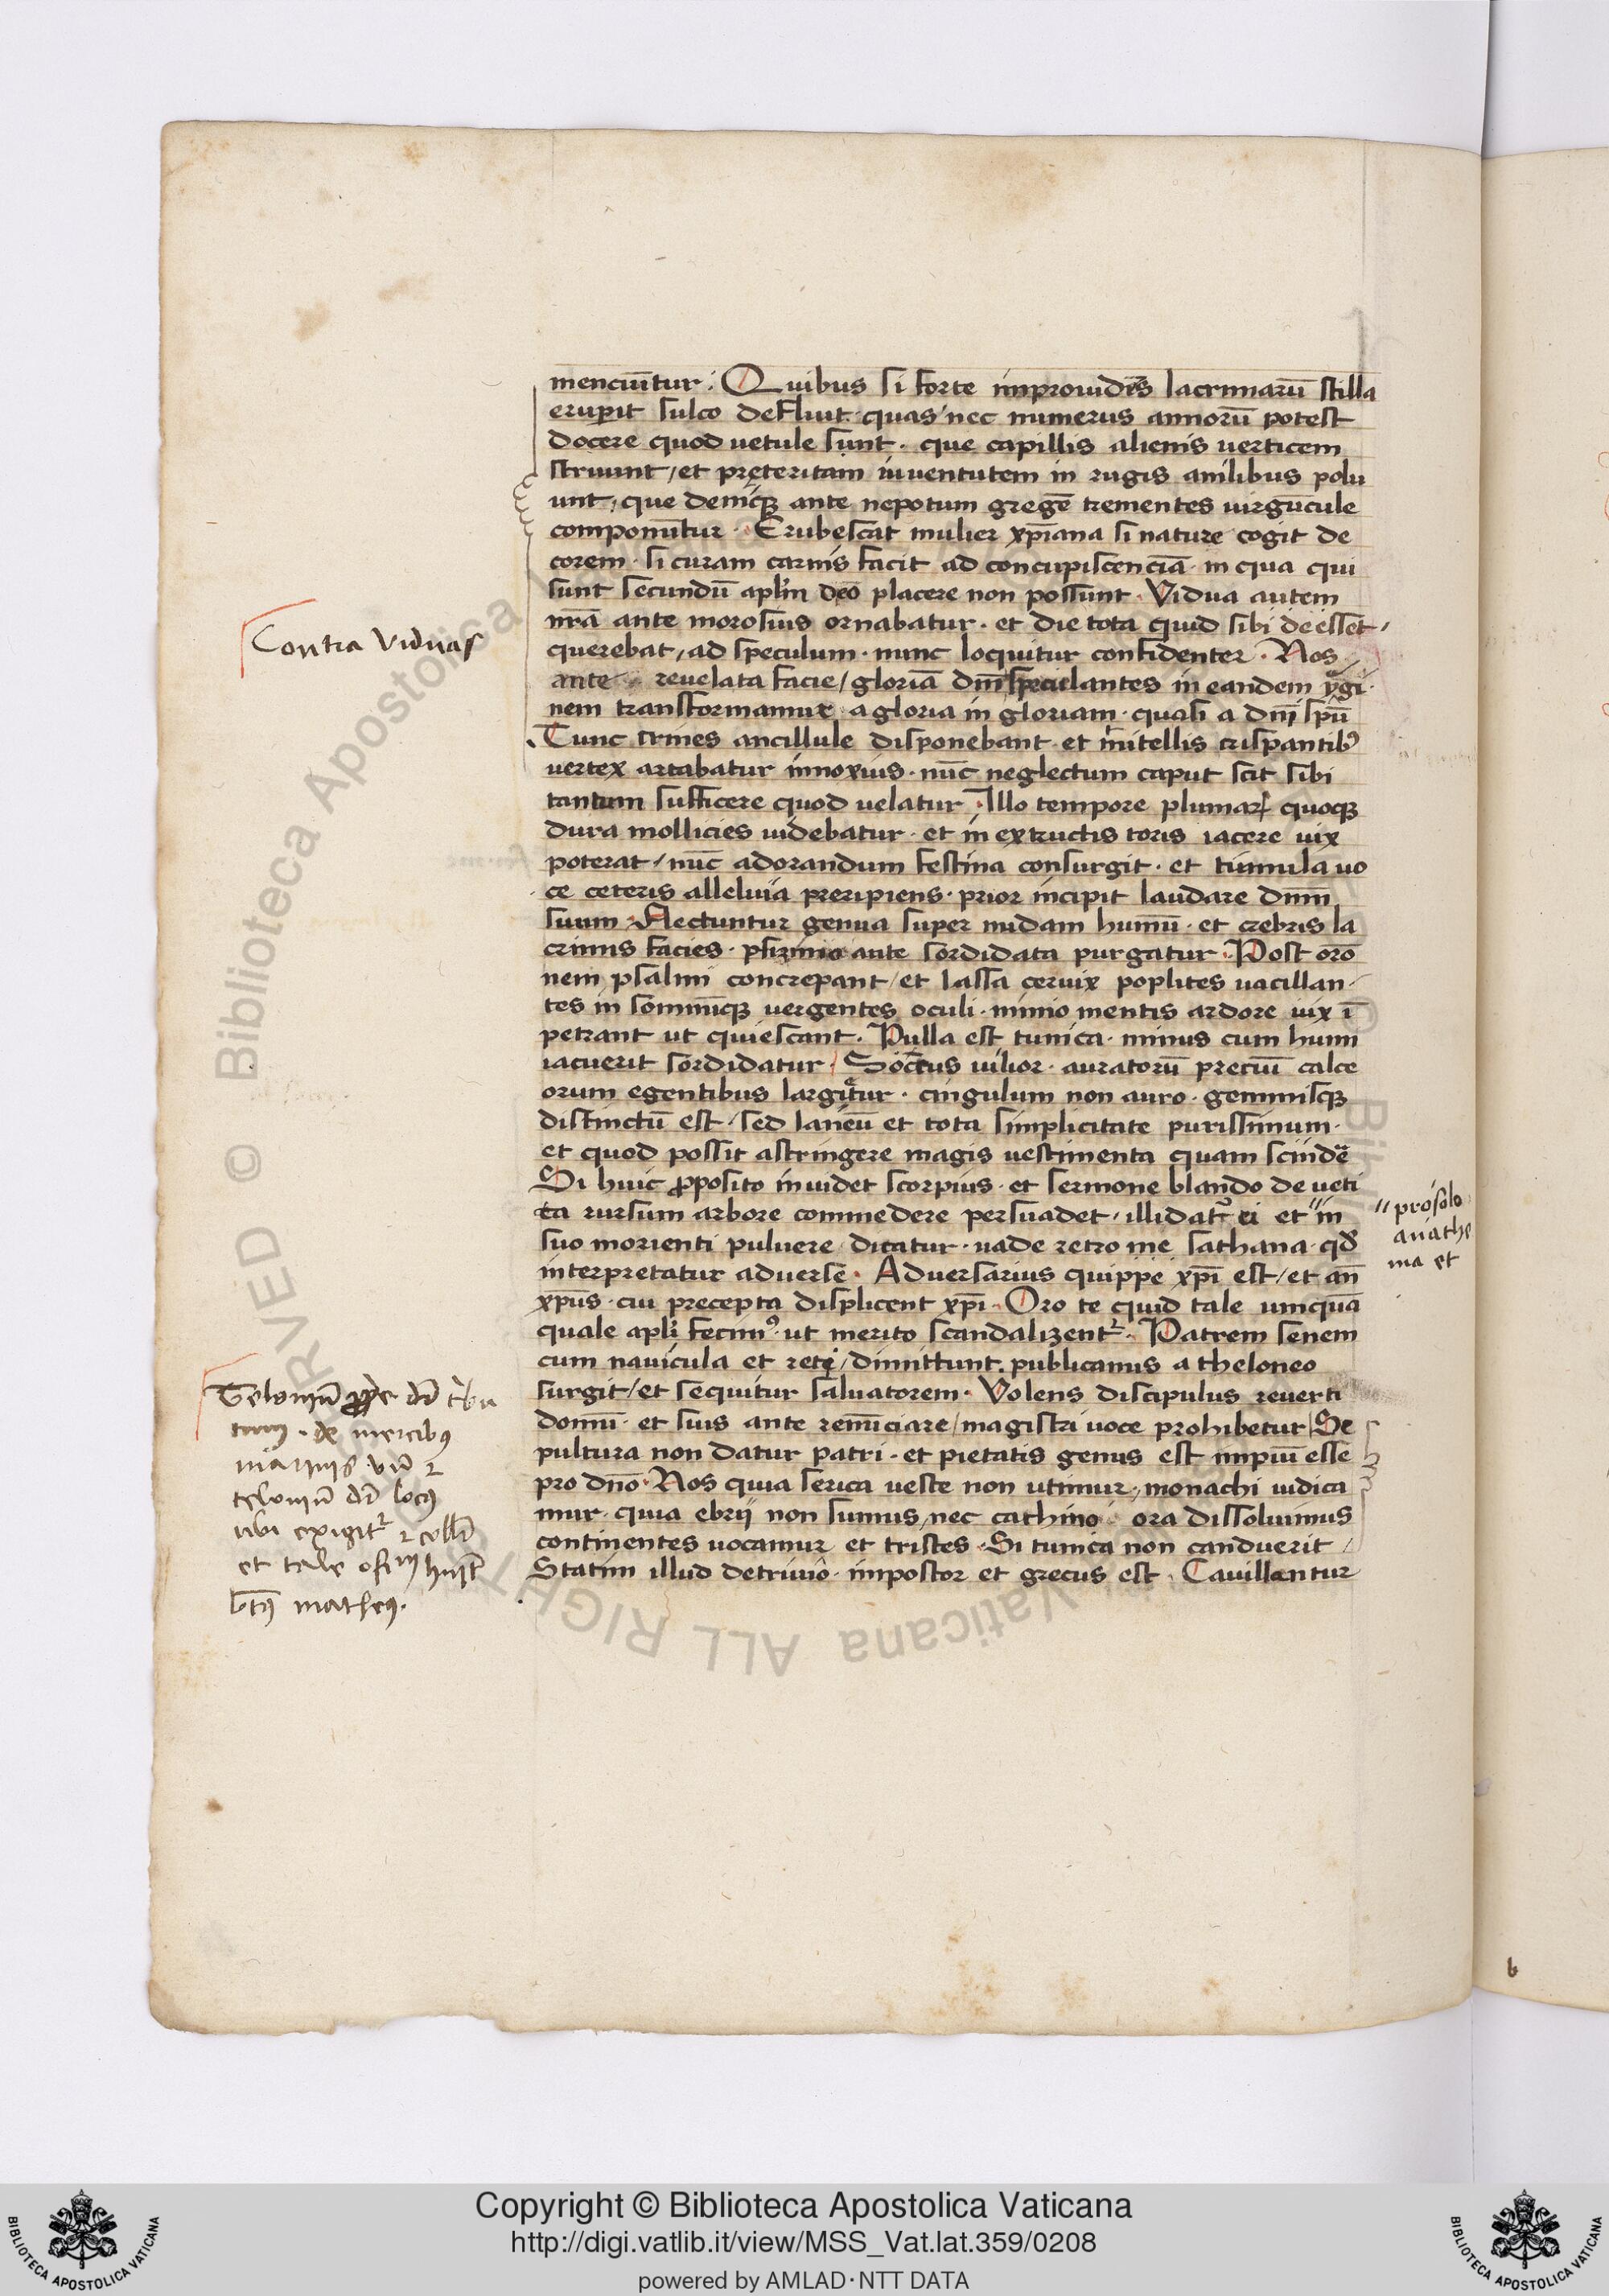 menciuntur. Quibus si forte improuides lacrimarū stilla
eruperit sulco defluit. quas nec numerus annorū potest
docere quod uetule sunt. que capillis alienis uerticem
struunt / et preteritam iuuentutem in rugis anilibus poli
unt, que deniqȝ ante nepotum gregē trementes uirgucule
componūtur. Erubescat mulier xp̄iana si nature cogit de
corem. si curam carnis facit ad concupiscenciā. in qua qui
sunt secundū apl̄m deo placere non possunt. Vidua autem
nr̄a ante morosius ornabatur. et die tota quid sibi deesset
querebat, ad speculum. nunc loquitur confidenter. Nos
ante reuelata facie / gloriā dn̄i speculantes in eandem ymagi
nem transformamur a gloria in gloriam. quasi a dn̄i sp̄u
Tunc crines ancillule disponebant et mitellis crispantibꝰ
uertex artabatur innoxius. nūc neglectum caput scit sibi
tantum sufficere quod uelatur. Illo tempore plumarꝝ quoqȝ
dura mollicies uidebatur. et in extructis toris iacere uix
poterat / nūc adorandum festina consurgit. et tinnula uo
ce ceteris alleluia preripiens. prior incipit laudare dn̄m
suum. Flectuntur genua super nudam humū. et crebris la
crimis facies. psimio ante sordidata purgatur. Post orō
nem psalmi concrepant / et lassa ceruix poplites uacillan
tes in somnūqȝ uergentes oculi. nimio mentis ardore uix ī
petrant ut quiescant. Pulla est tunica. minus cum humi
iacuerit sordidatur. Soccus uilior. auratorū preciū calce
orum egentibus largitur. cingulum non auro. gemmisqȝ
distinctū est / sed laneū et tota simplicitate purissimum.
et quod possit astringere magis uestimenta quam scindē
Si huic ꝓposito inuidet scorpius. et sermone blando de ueti
ta rursum arbore commedere persuadet / illidatr̄ ei et "in
suo morienti puluere dicatur. uade retro me sathana. qd̄
interpretatur aduerse. Aduersarius quippe xp̄i est / et an̄
xp̄us. cui precepta displicent xp̄i. Oro te quid tale umquā
quale apl̄i fecimꝰ. ut merito scandalizentr̄. Patrem senem
cum nauicula et rete / dimittunt. publicanus a theloneo
surgit / et sequitur saluatorem. Volens discipulus reuerti
domū. et suis ante renūciare / magistri uoce prohibetur Se
pultura non datur patri. et pietatis genus est impiū esse
pro dn̄o. Nos quia serica ueste non utimur, monachi iudica
mur. quia ebrij non sumus, nec cachino ora dissoluimus
continentes uocamur et tristes. Si tunica non canduerit /
Statim illud de triuio. impostor et grecus est. Cauillentur
Contra viduas
"prosolo
anathe
ma et
Telonium ꝓprie dr̄ tribu
tum. de mercibꝰ
marinis
telonium dr̄ locꝰ
ubi exigitr̄
et tale ofm̄ huit
btꝰ matheꝰ.
b
Copyright © Biblioteca Apostolica Vaticana
http://digi.vatlib.it/view/MSS_Vat.lat.359/0208
powered by AMLAD·NTT DATA
BIBLIOTECA APOSTOLICA VATICANA
BIBLIOTECA APOSTOLICA VATICANA